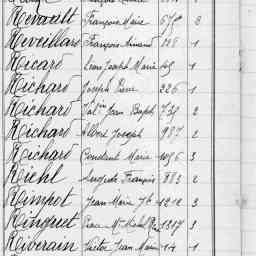 Revault François Marie 678 3
Reveillard François Armand 128 1
Ricard Jean Joseph Marie 48 1
Richard Joseph Pierre 226 1
Richard Jean Bapt 734 2
Richard Albert Joseph 987 2
Richard Constant Marie 1076 3
Riehl François 883 2
Rimpot Jean Marie 1212 3
Rinquet 1317 3
Riverain Victor Jean Marie 14 1